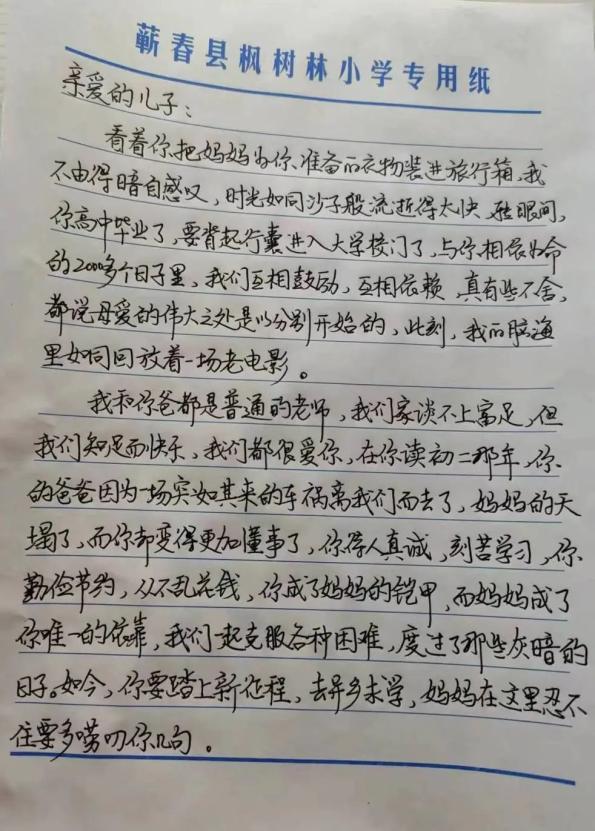 蕲春县枫树林小学专用纸
亲爱的儿子：
看着你把妈妈为你准备的衣物装进旅行箱，我
不由得暗自感叹，时光如同沙子般流逝得太快，转眼间，
你高中毕业了，要背起行囊进入大学校门了，与你相依为命
的2000多个日子里，我们互相鼓励，互相依赖，真有些不舍，
都说母爱的伟大之处是以分别开始的，此刻，我的脑海
里如同回放着一场老电影。
我和你爸都是普通的老师，我们家谈不上富足，但
我们知足而快乐，我们都很爱你，在你读初二那年，你
的爸爸因为一场突如其来的车祸离我们而去了，妈妈的天
塌了，而你却变得更加懂事了，你待人真诚，刻苦学习，你
勤俭节约，从不乱花钱，你成了妈妈的铠甲，而妈妈成了
你唯一的依靠，我们一起克服各种困难，度过了那些灰暗的
日子。如今，你要踏上新征程，去异乡求学，妈妈在这里忍不
住要多唠叨你几句。